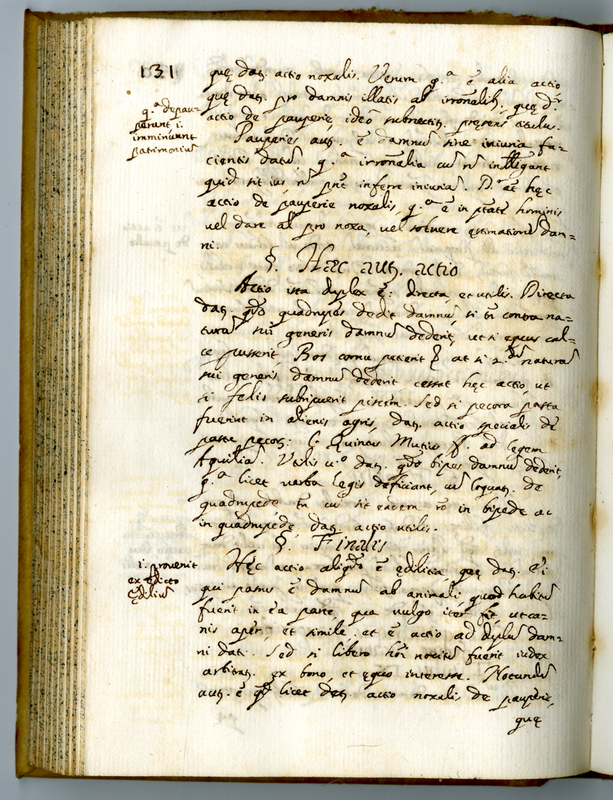 131
quę dat. actio noxalis. Verum q.a ē alia actio,
quę dat. pro damnis illatis ab irrōnalib. quę dr
actio de pauperie, ideo subnectit. pręsens titulus.
q.a depau=
perant i.
imminuunt
patrimoniū
Pauperies aut. ē damnū sine iniuria fa=
cientis datū, q.a irrōnalia cū nō intelligant
quid sit ius, nō pnt inferre iniuriā. Dr et hęc
actio de pauperie noxalis, q.a ē in ptate hominis
vel dare aĺ pro noxa, vel solvere ęstimationē dam=
ni.
§. Hæc aut. actio
Actio ista duplex ē: directa et utilis. Directa
dat. qdo quadrupes dedit damnū, si tn contra na=
turā sui generis damnū dederit, ut si equus cal=
ce Bos cornu petierit at si 2.dum naturā
sui generis damnum dederit cessat hęc actio, ut
si felis piscem. Sed si pecora pasta
fuerint in alienis agris, dat. actio specialis de
pastu pecor. l. Quintus Mutius ff. ad legem
Aquiliā. Utilis vo dat. qdo bipes damnū dederit,
q.a licet verba legis deficiant, cū loquat. de
quadrupede, tn cū sit eadem rō in bipede ac
in quadrupede, dat. actio utilis.
§. Finalis
i. provenit
ex edicto
ędiliū
Hęc actio aliqdo ē ędilitia, quę dat. ei
qui passus ē damnū ab animali, quod habitū
fuerit in ea parte, qua vulgo iter fit, ut ca=
nis aper, et simile. et ē actio ad duplū dam=
ni dati. Sed si libero hōi nocitū fuerit iudex
arbitrat. ex bono, et ęquo interesse. Notandū
aut. ē qd licet det. actio noxalis de pauperie,
quę